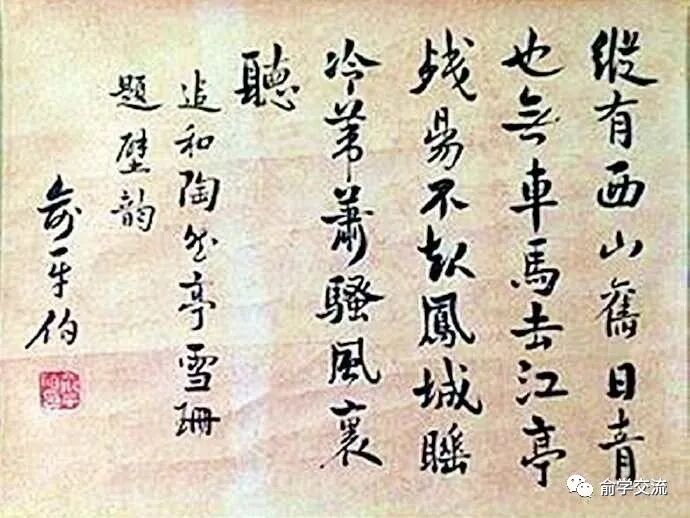 縱有西山舊日青
也無車馬去江亭
残昜不起鳳城睡
冷苇蕭騷風裏
聽
追和陶然亭雪珊
題壁韵
俞平伯
俞学交流